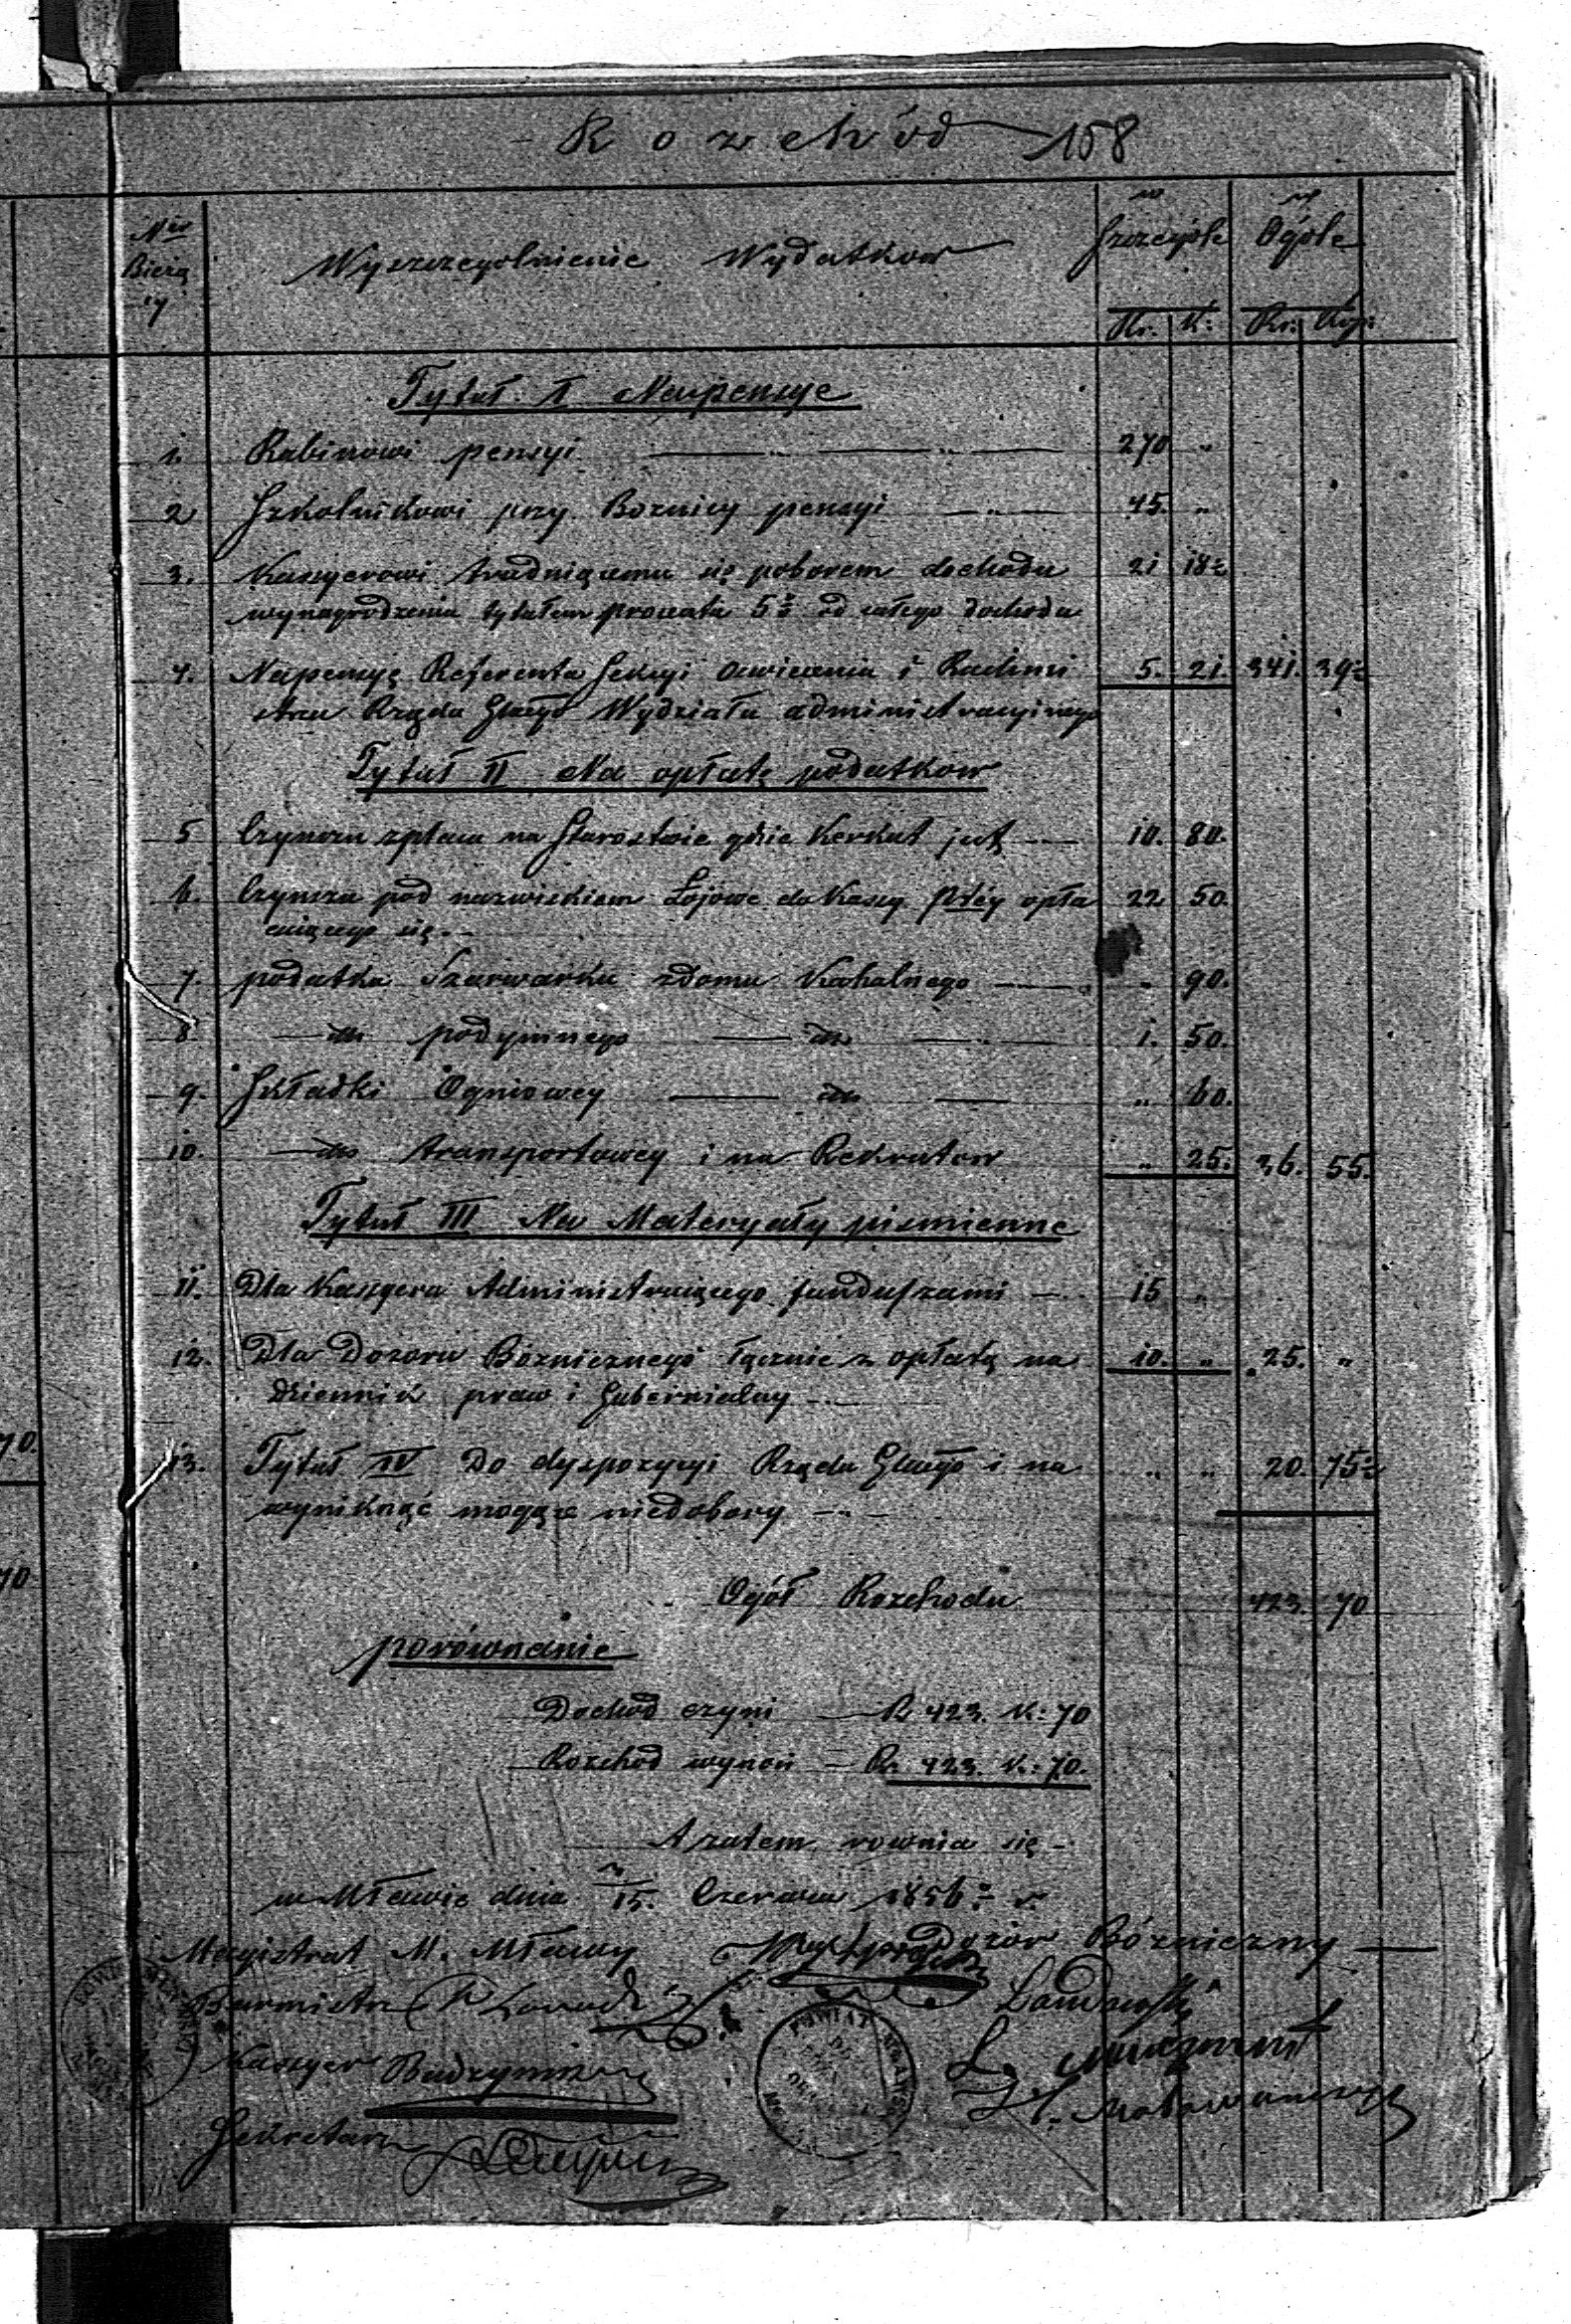 Rozchód 158
Nr Bieżą
cy
Wyszczegolnienie Wydatkow
w Szczegole
w Ogóle
Rs. K: Rs: Kop:
Tytuł I Na pensye
1. Rabinowi pensyi 270 "
2 Szkolnikowi przy Boznicy pensyi 45. "
3. Kassyerowi trudniącemu się poborem dochodu 21 18½
wynagrodzenia tytułem procentu 5% od całego dochodu
4. Na pensyę Referenta Sekcyi Oswiecenia i Rachmi 5. 21. 341. 39½
strza Rządu Glnego Wydziału administracyjnego
Tytuł II Na opłatę podatkow
5 Czynszu z placu na Starostwie gdzie Kerkut jest 10. 80.
6. Czynszu pod nazwiskiem Łojowe do Kassy opła 22 50.
cającego się
7. podatku Szarwarku z domu Kahalnego " 90.
8. do podymnego do 1. 50.
9. Składki Ogniowey do " 60.
10. do transportowey i na Rekrutow " 25. 36. 55.
Tytuł III Na Materyały pismienne
11. Dla Kassyera Administruiącego funduszami 15 "
12. Dla Dozoru Bóżnicznego łącznie z opłatą na 10. " 25. "
dziennik praw i Gubernialny
13. Tytuł IV Do dyspozycyi Rządu Glnego i na " " 20. 75½
wyniknąć mogące niedobory
Ogół Rozchodu 423. 70
porównanie
Dochod czyni R 423. K: 70
Rozchod wynosi R. 423. K: 70.
A zatem rownia się
w Mławie dnia 3/15. Czerwca 1856 r.
Magistrat M. Mławy Dozór Bóżniczny
Burmistrz
Kassyer
Sekretarz